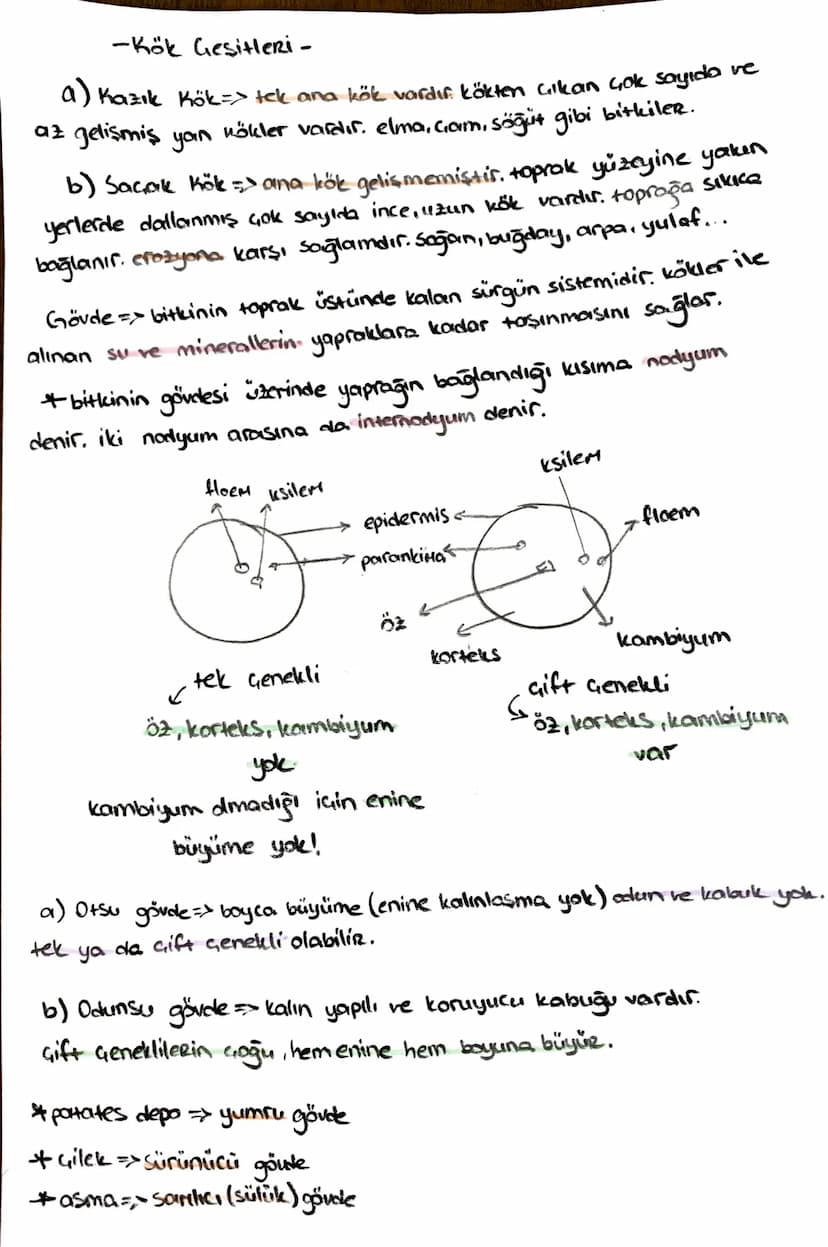 - Kök Çeşitleri -
a) Kazık Kök => tek ana kök vardır. kökten çıkan çok sayıda ve
az gelişmiş yan kökler vardır. elma, çam, söğüt gibi bitkiler.
b) Saçak Kök => ana kök gelişmemiştir. toprak yüzeyine yakın
yerlerde dallanmış çok sayıda ince, uzun kök vardır. toprağa sıkıca
bağlanır. erozyona karşı sağlamdır. Soğan, buğday, arpa, yulaf...
Gövde => bitkinin toprak üstünde kalan sürgün sistemidir. kökler ile
alınan su ve minerallerin yapraklara kadar taşınmasını sağlar.
* bitkinin gövdesi üzerinde yaprağın bağlandığı kısıma nodyum
denir. iki nodyum arasına da internodyum denir.
floem ksilem
ksilem
epidermis
floem
parankima
öz
korteks
kambiyum
tek çenekli
öz, korteks, kambiyum
yok
kambiyum olmadığı için enine
büyüme yok!
çift çenekli
öz, korteks, kambiyum
var
a) Otsu gövde => boyca büyüme (enine kalınlaşma yok) odun ve kabuk yok.
tek ya da çift çenekli olabilir.
b) Odunsu gövde => kalın yapılı ve koruyucu kabuğu vardır.
çift çeneklilerin çoğu, hem enine hem boyuna büyür.
* patates depo => yumru gövde
* çilek => sürünücü gövde
* asma => sarılıcı (sülük) gövde